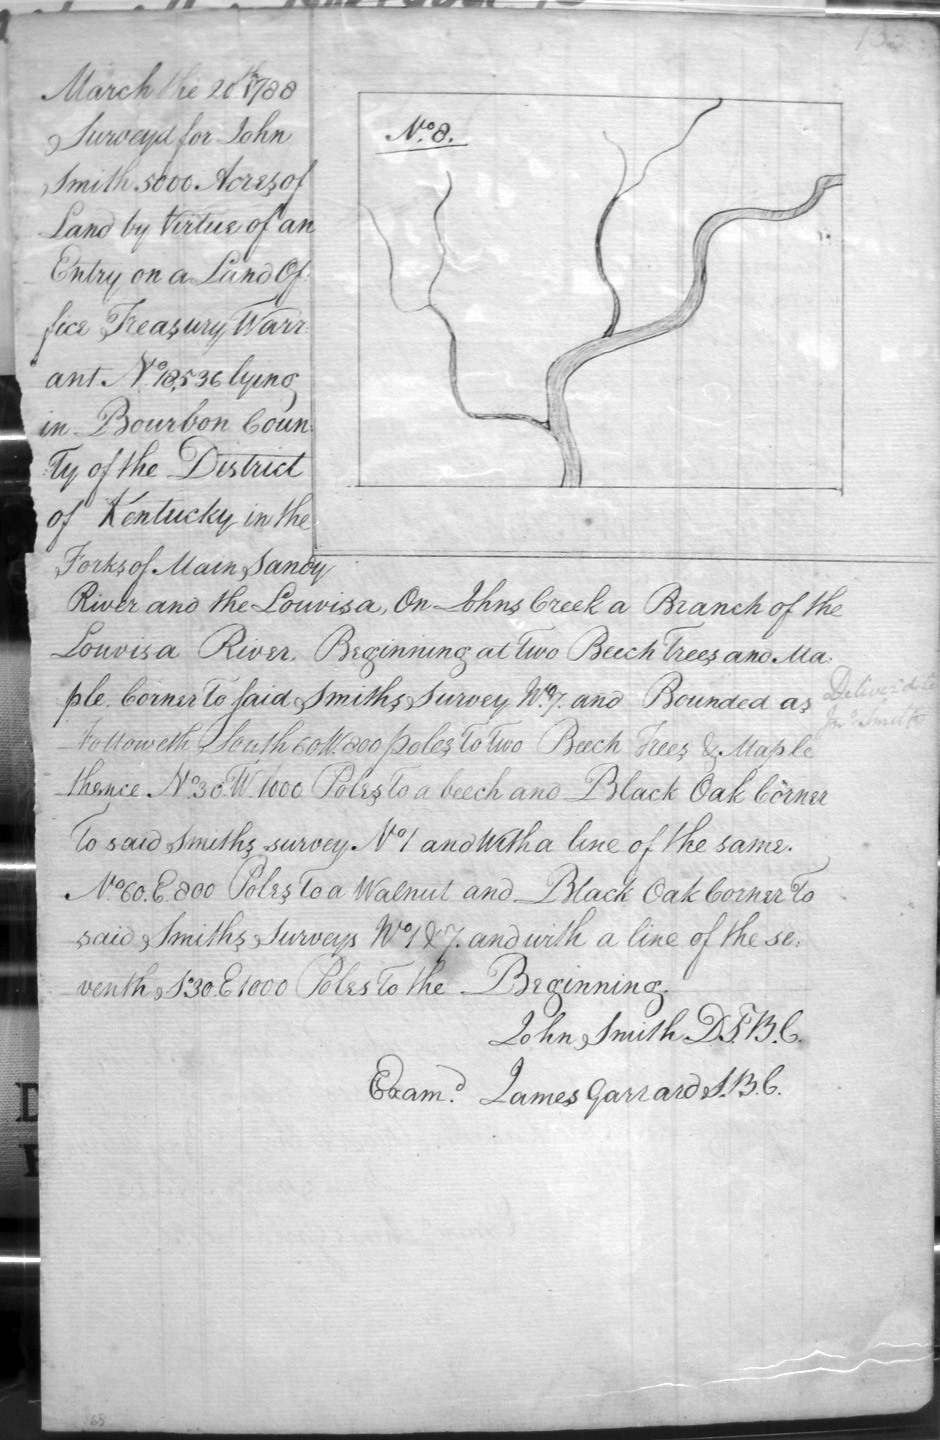 March the 20th 1788
Survey'd for John
Smith 5000 Acres of
Land by Virtue of an
Entry on a Land Of
fice Treasury Warr
ant No. 18,536 lying
in Bourbon Coun
Ty of the District
of Kentucky in the
Forks of Main Sandy
River and the Louvisa, On Johns Creek a Branch of the
Louvisa River. Beginning at Two Beech Trees and Ma:
ple Corner To said Smiths Survey No. 7. and Bounded as
Followeth South 60 W. 800 poles To Two Beech Trees & Maple
thence No. 30. W. 1000 Poles To a beech and Black Oak Corner
To said Smiths survey No 1 and With a line of the same.
No. 60. E. 800 Poles To a Walnut and Black Oak Corner To
said Smiths Surveys No 1 & 7. and with a line of the se:
venth So. 30. E 1000 Poles To the Beginning.
John Smith D.S.B.C.
Exam.d James Garrard S.B.C.
No. 8.
Deliver'd to
Jno. Smith